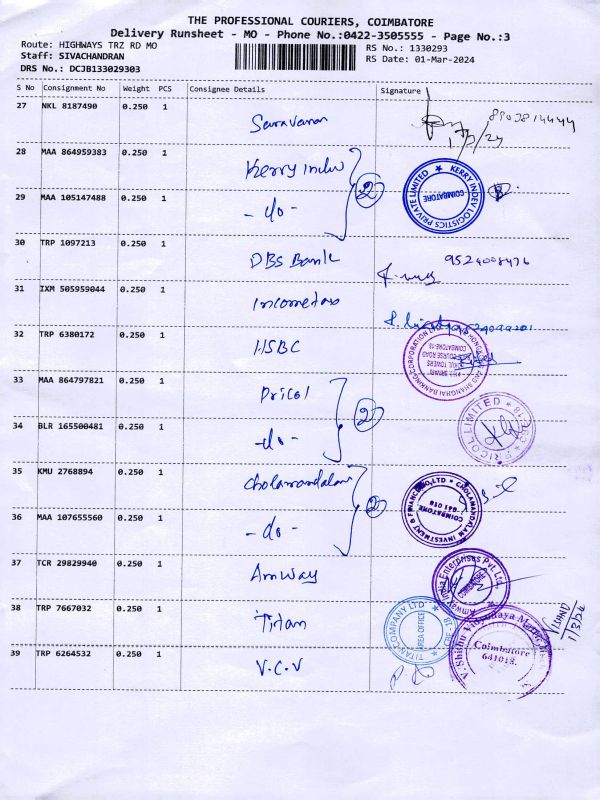 THE PROFESSIONAL COURIERS, COIMBATORE
Delivery Runsheet - MO - Phone No.:0422-3505555 - Page No.:3
Route: HIGHWAYS TRZ RD MO RS No.: 1330293
Staff: SIVACHANDRAN RS Date: 01-Mar-2024
DRS No.: DCJB133029303
S No Consignment No Weight PCS Consignee Details Signature
27 NKL 8187490 0.250 1 Saravanan
1/3/24
28 MAA 864959383 0.250 1 Kerry Indev 2
KERRY INDEV LOGISTICS PRIVATE LIMITED COIMBATORE
29 MAA 105147488 0.250 1 -do-
30 TRP 1097213 0.250 1 DBS Bank 9524008476
31 IXM 505959044 0.250 1 Incometax
32 TRP 6380172 0.250 1 HSBC
33 MAA 864797821 0.250 1 Pricol 2
PRICOL LIMITED
34 BLR 165500481 0.250 1 -do-
35 KMU 2768894 0.250 1 Cholamandalam 2
CHOLAMANDALAM INVESTMENT & FINANCE CO LTD COIMBATORE 641 018
36 MAA 107655560 0.250 1 -do-
37 TCR 29829940 0.250 1 Amway
Amway India Enterprises Pvt. Ltd. COIMBATORE
38 TRP 7667032 0.250 1 Titan
TITAN COMPANY LTD AREA OFFICE CBE-18
1/3/24
39 TRP 6264532 0.250 1 V.C.V
Coimbatore
641018.